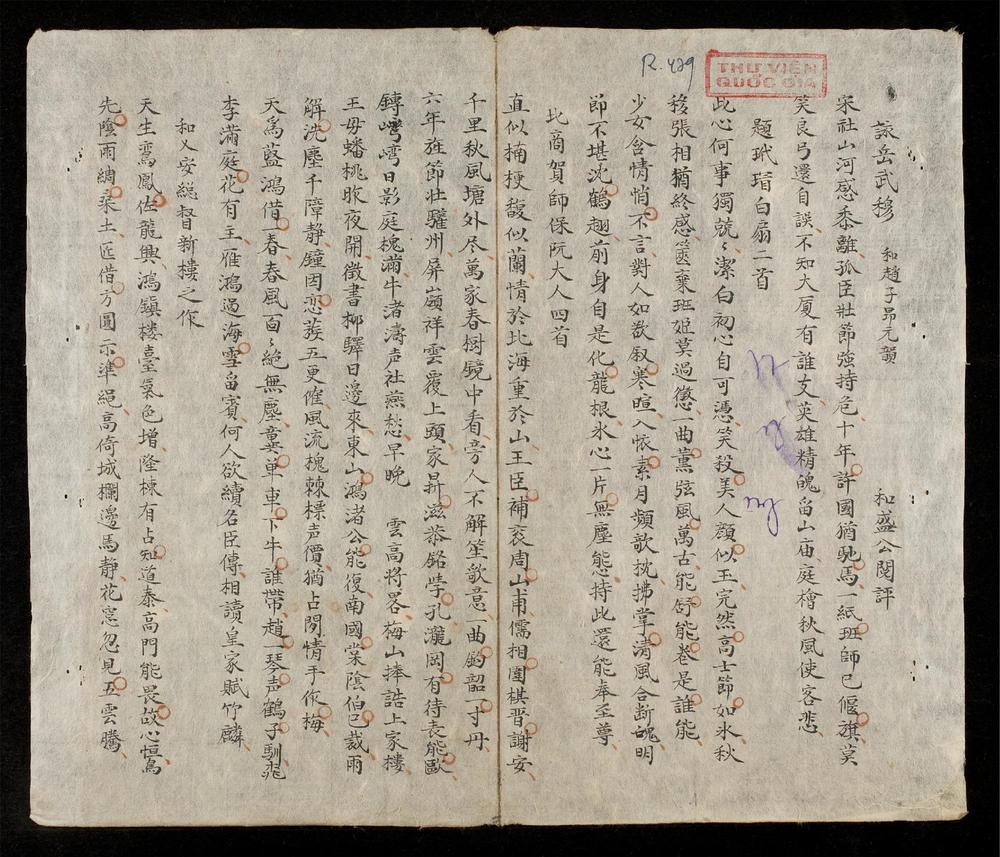 R.429
THƯ VIỆN
QUỐC GIA
詠岳武穆 和趙子昂元韻 和盛公閱評
宋社山河感黍離孤臣壯節強持危十年許國猶馳馬一紙班師已偃旗莫
笑良弓還自誤不知大厦有誰支英雄精魄留山庙庭檜秋風使客悲
題玳瑁白扇二首
此心何事獨兢〻潔白初心自可憑笑殺美人顏似玉完然高士節如氷秋
移張相猶終感篋棄班姬莫過懲一曲薰弦風萬古能舒能卷是誰能
少女含情悄不言對人如欲叙寒暄入懷素月頻欹枕拂掌清風合断魂明
節不堪沈鶴翅前身自是化龍根氷心一片無塵態持此還能奉至尊
北商賀師保阮大人四首
直似楠梗馥似蘭情於北海重於山王臣補衮周山甫儒相圍棋晋謝安
千里秋風塘外尽萬家春樹鏡中看旁人不解笙歌意一曲韵韶一寸丹
六年旌節壯驩州屏嶺祥雲覆上頭家昇滋恭銘孛孔瀧岡有待表能歐
鏄彎湾日影庭槐滿牛渚濤声社燕愁早晚 雲高將畧梅山捧誥上家樓
王母蟠桃昨夜開徵書柳驛日邊來東山鴻渚公能復南國棠陰伯已裁雨
解洗塵千障静鐘因恋蕤五更催風流槐棘標声價猶占閑情手作梅
天爲藍鴻借一春春風百〻絶無塵糞单車下牛誰帶趙一琴声鶴子馴飛
李滿庭花有主雁鴻過海雪留賓何人欲續名臣傳相讀皇家賦竹麟
和乂安總督新樓之作
天生鸞鳳佐龍興鴻鎮楼臺氣色增隆棟有占知道泰高門能畏故心恒爲
先陰雨綢桑土匠借方圓示準縄高倚城欄邊馬静花窓忽見五雲騰